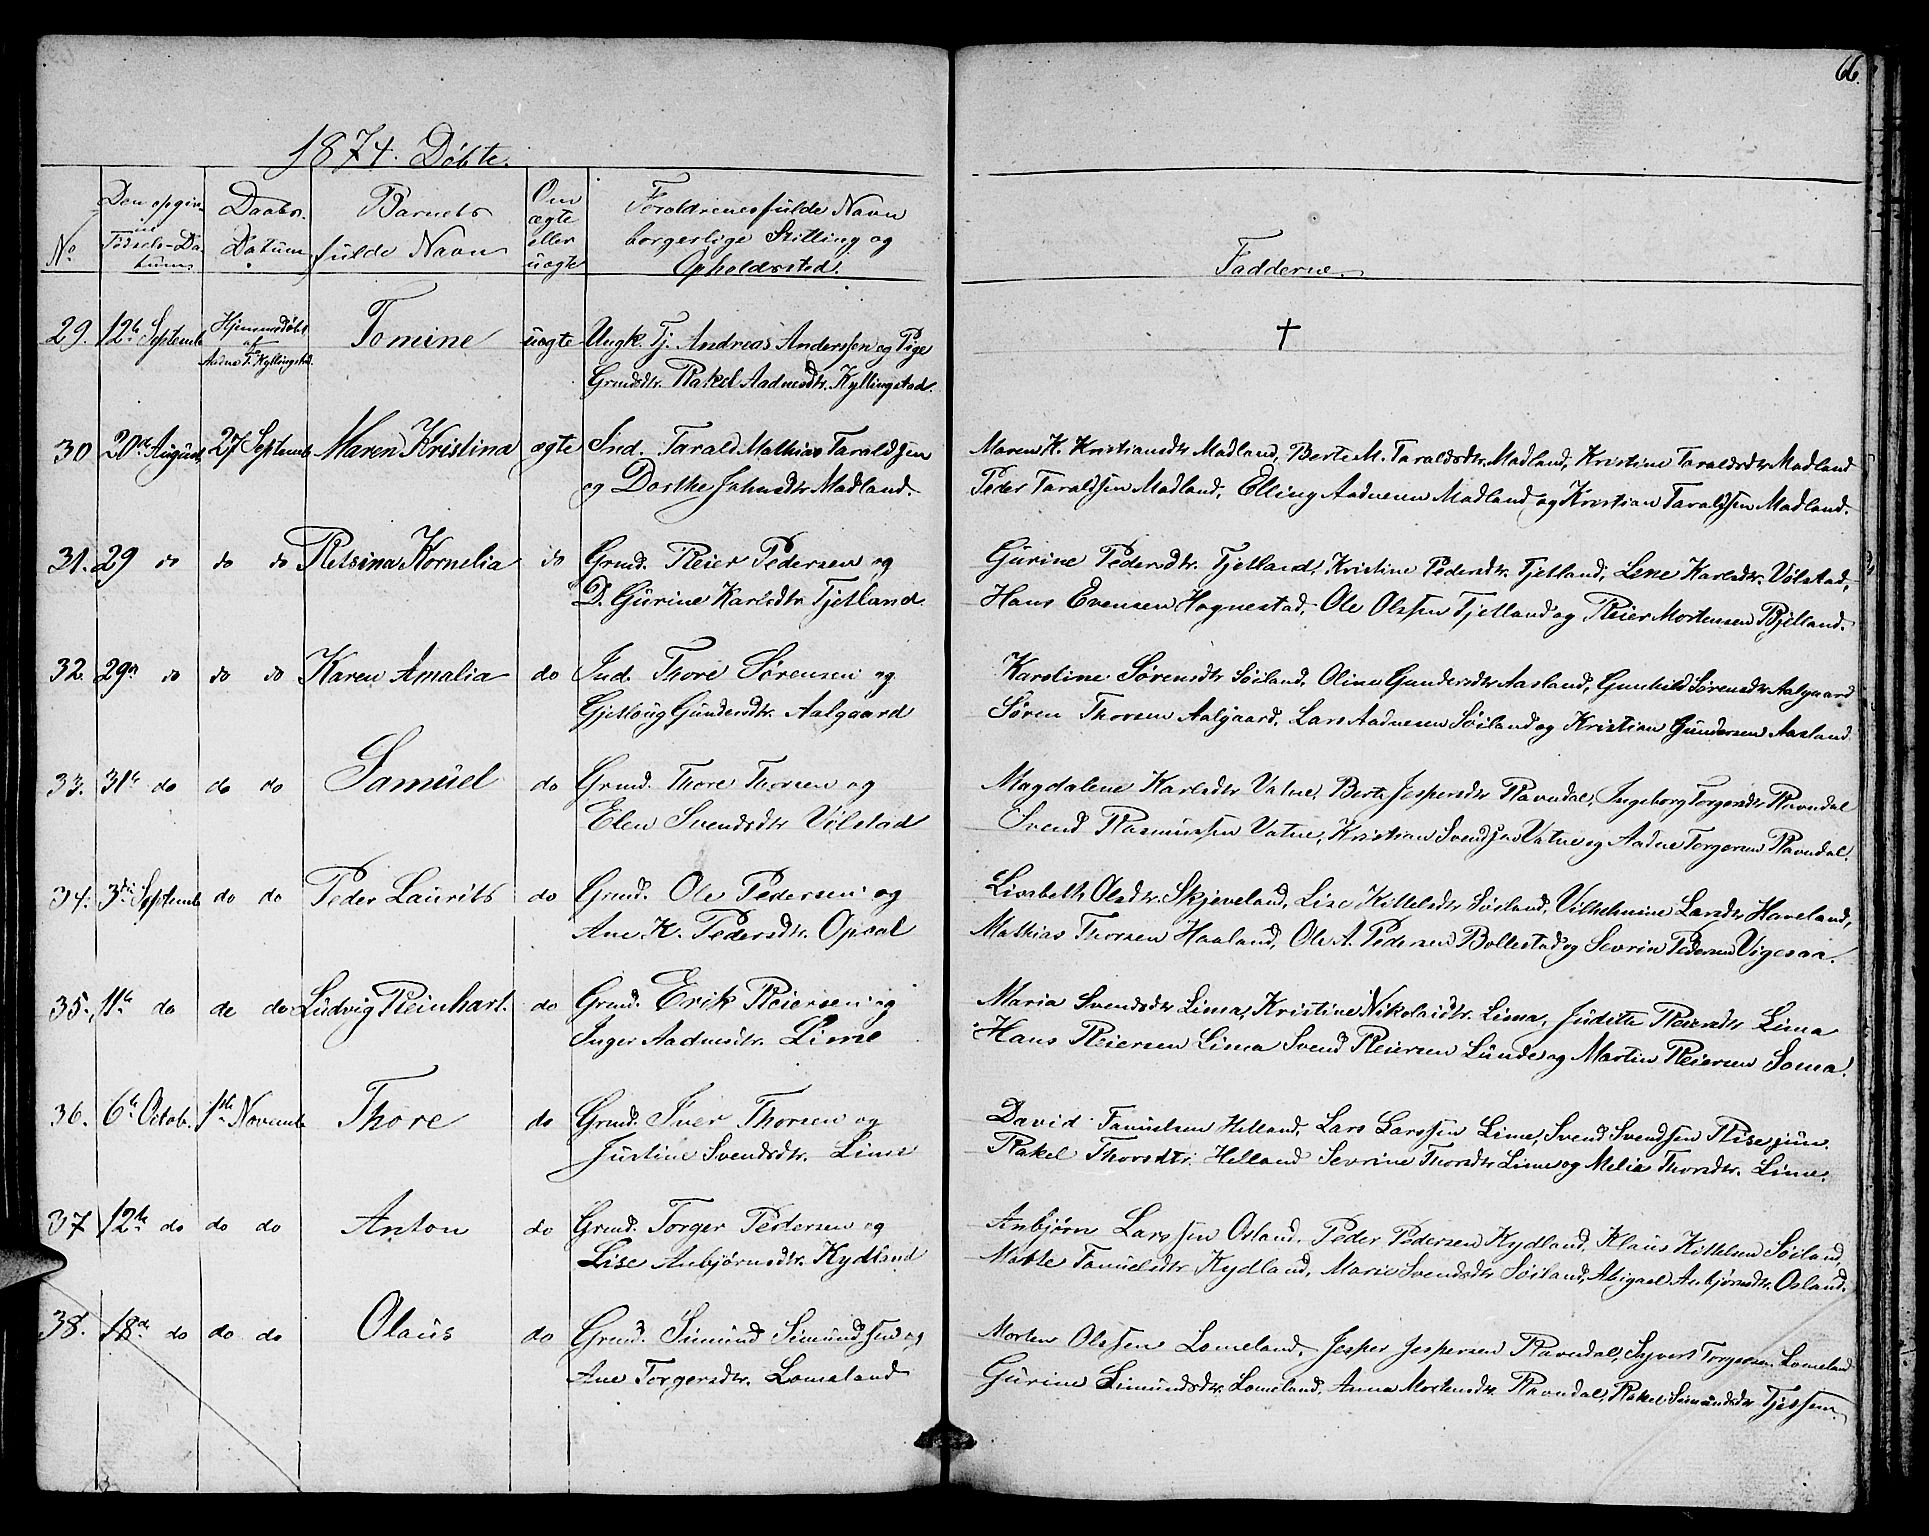 66.
1874. Döbte.
No
Den opgivne Födsels-Datum
Daabs. Datum
Barnets fulde Navn
Om ægte eller uægte
Forældrenes fulde Navn borgerlige Stilling og Opholdssted.
Fadderne.
29. 12te Septemb Hjemmedöbt af Aadne T. Kyllingstad. Tomine uægte Ungk. Tj. Andreas Anderssen og Pige
Grmdsdtr. Rakel Aadnesdtr. Kyllingstad.
†
30 20de August 27 Septemb Maren Kristina ægte Ind. Tarald Mathias Taraldsen
og Dorthe Johnsdtr Madland.
Maren K. Kristiansdtr Madland, Berte M. Taraldsdtr Madland, Kristine Taraldsdtr Madland
Peder Taraldsen Madland, Elling Aadnesen Madland og Kristian Taraldsen Madland.
31. 29 do do do Retsina Kornelia do Grmd. Reier Pedersen og
D. Gurine Karlsdtr Tjetland
Gurine Pedersdtr. Tjetland, Kristine Pedersdtr. Tjetland, Lene Karlsdtr. Völstad,
Hans Evensen Hognestad, Ole Olssen Tjetland og Reier Mortensen Bjelland.
32. 29n do do do Karen Amalia do Ind. Thore Sörensen og
Gjetloug Gundersdtr. Aalgaard
Karoline Sörensdtr Söiland, Oline Gundersdtr Aasland, Gunhild Sörensdtr Aalgaard
Sören Thorsen Aalgaard, Lars Aadnesen Söiland og Kristian Gundersen Aasland.
33. 31te do do do Samuel do Grmd. Thore Thorsen og
Elen Svendsdtr Völstad
Magdalene Karlsdtr Vatne, Berte Jespersdtr Ravndal, Ingeborg Torgersdtr Ravndal
Svend Rasmussen Vatne, Kristian Svendsen Vatne og Aadne Torgersen Ravndal.
34. 3die Septemb do do Peder Laurits do Grmd. Ole Pedersen og
Ane K. Pedersdtr. Opsal
Livsbeth Olsdtr. Skjeveland, Lise Kittelsdtr Söiland, Vilhelmine Larsdtr Haveland,
Mathias Thorsen Haaland, Ole A. Pedersen Bollestad og Sevrin Pedersen Vigesaa.
35. 11te do do do Ludvig Reinhart. do Grmd. Erik Reiersen og
Inger Aadnesdtr. Lime
Maria Svendsdtr Lima, Kristine Nikolaisdtr. Lima, Juditte Reiersdtr Lima
Hans Reiersen Lima Svend Reiersen Lunde og Martin Reiersen Soma.
36. 6te Octob. 1ste Novemb Thore do Grmd. Iver Thorsen og
Justine Svendsdtr. Lime
David Samuelsen Helland, Lars Larssen Lime, Svend Svendsen Rise jun.
Rakel Thorsdtr. Helland Sevrine Thorsdtr Lime og Melia Thorsdtr. Lime.
37 12te do do do Anton do Grmd. Torger Pedersen og
Lise Anbjörnsdtr. Kydland
Anbjörn Larssen Osland, Peder Pedersen Kydland, Klaus Kittelsen Söiland,
Malte Samuelsdtr Kydland, Marie Svendsdtr Söiland, Abigael Anbjörnsdtr. Osland.
38. 18de do do do Olaus do Grmd. Simund Simundssen og
Ane Torgersdtr. Lomeland
Morten Olssen Lomeland, Jesper Jespersen Ravndal, Sigvert Torgersen Lomeland
Gurine Simundsdtr Lomeland, Anna Mortensdtr. Ravndal, Rakel Simundsdtr Tjessem.